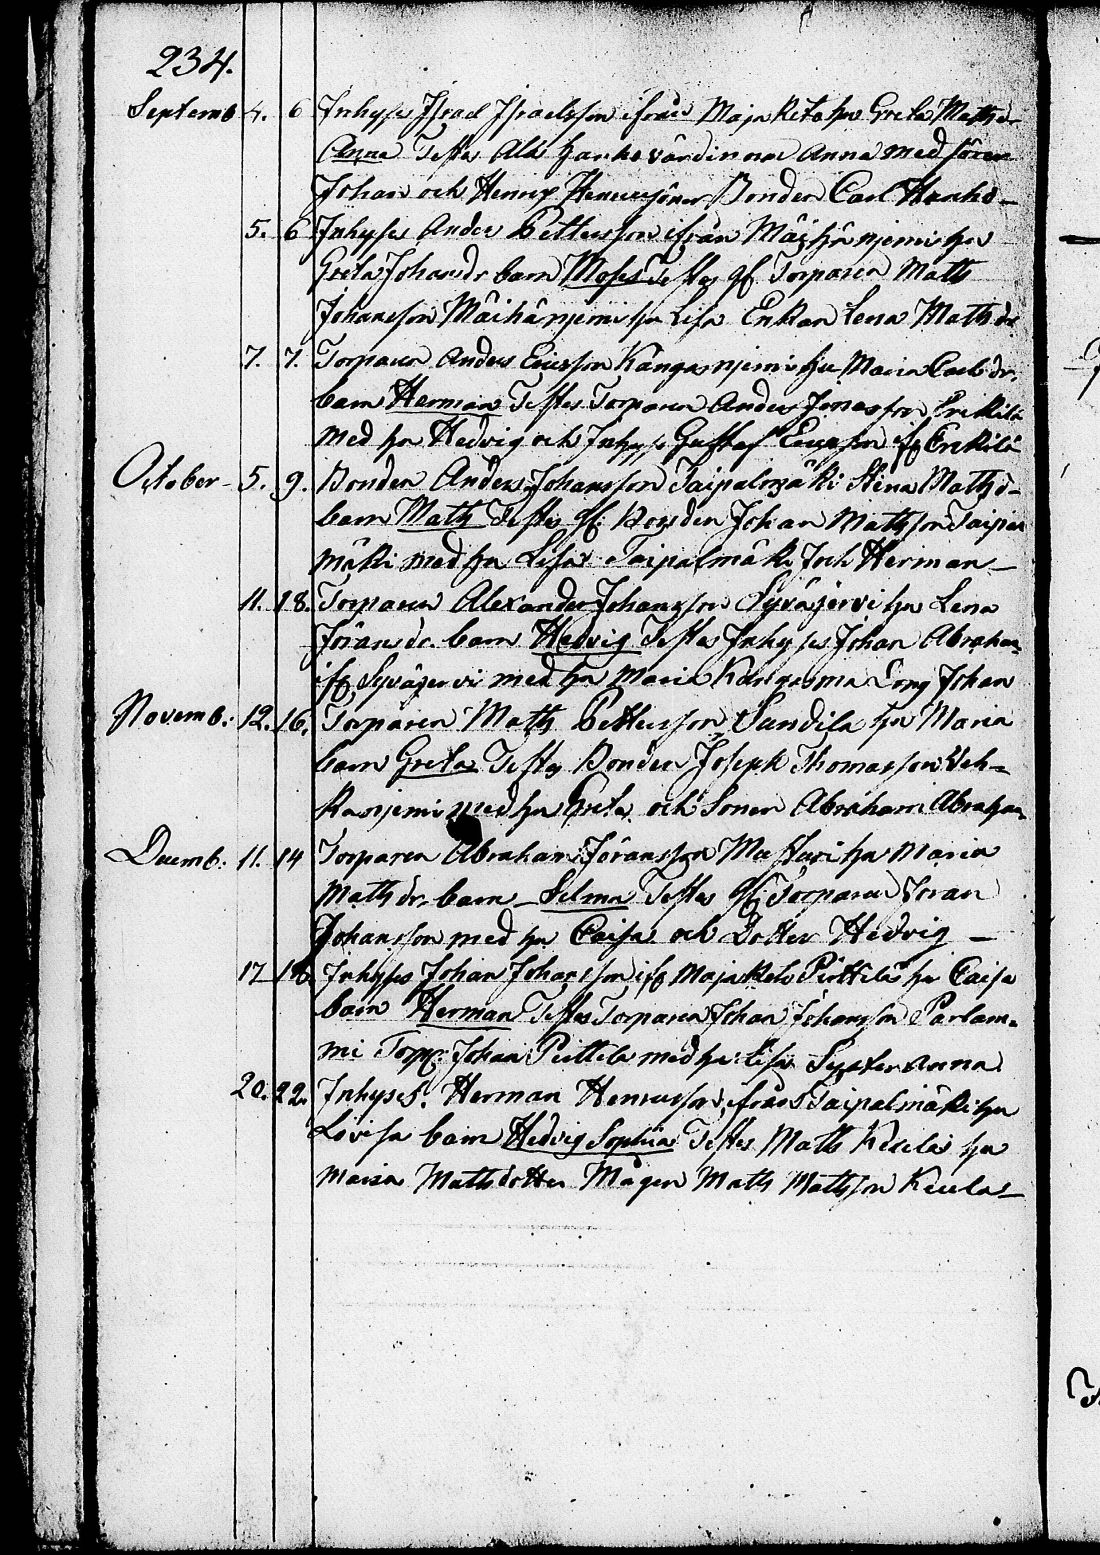 234.
Septemb 4. 6 Inhyses Israel Israelsson ifrån Maja Keto hu Greta Mathsdr
Anna Testes Ald Hanka värdinna Anna med sönen
Johan och Henric Bonden Carl Hanka
5. 6 Inhyses Anders Pettersson ifrån hu
Greta Johansdr barn Moses Testes gf. Torparen Math
Johansson hu Lisa Enkan Lena Mathsdr
7. 7. Torparen Anders Ericsson Kangasnjemi hu Maria Carlsdr.
barn Herman Testes Torparen Anders Jonasson Erkkilä
med hu Hedvig och Inhyses Gustaf Ericsson if Erkkilä
October 5. 9. Bonden Anders Johansson Taipalmäki Stina Mathsd
barn Math Testes gf. Bonden Johan Mathsson
mäki med hu Lisa Taipalmäki Herman
11. 18. Torparen Alexander Johansson Syväjervi hu Lena
Jöransdr. barn Hedvig Testes Inhyses Johan Abraham
if Syväjervi med hu Maria Kangasma Johan
Novemb: 12. 16. Torparen Math Pettersson Sundila hu Maria
barn Greta Testes Bonden Joseph Thomasson Veh-
kanjemi med hu Greta och Sonen Abraham Abraham
Decemb: 11. 14 Torparen Abraham Jöransson hu Maria
Mathsdr. barn Selma Testes gf. Torparen Jöran
Johansson med hu Caisa och Dotter Hedvig
17 18. Inhyses Johan Johansson if Maja Keto Pirttilä hu Caisa
barn Herman Testes Torparen Johan Johansson Parlam-
mi Torp. Johan Pirttilä med hu Lisa Syster Anna
20. 22. Inhyses. Herman Henricsson ifrån Taipalmäki hu
Lovisa barn Hedvig Sophia Testes Math Keulas hu
Maria Mathsdotter Mågen Math Mathsson Keulas